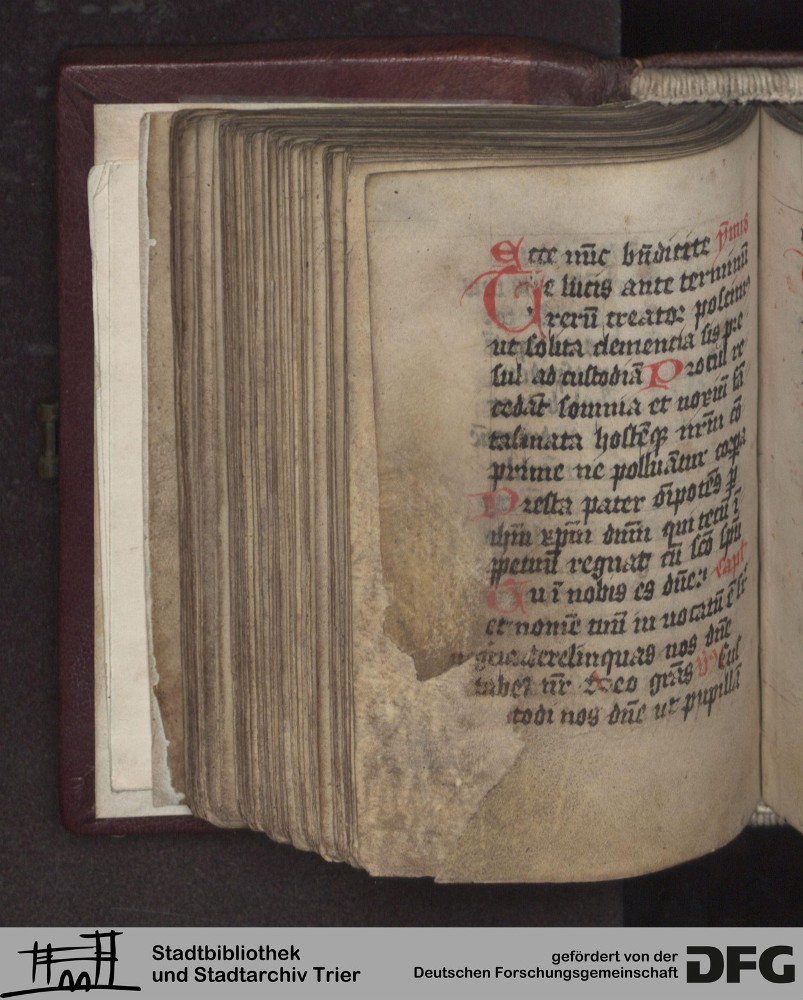 Ecce nūc bn̄dicite ȳmꝰ
Te lucis ante terminū
rerū creator poscimꝰ
ut solita clemencia sis pre
sul ad custodiā Procul re
cedāt somnia et noxiū fā
tasmata hostēqꝫ nr̄m cō
prime ne polluātur corpa
Presta pater oīpotēs ꝑ
ihm̄ xpm̄ dnm̄ qui tecū ī
ꝑpetuū regnat cū sc̄o spū
Tu ī nobis es dn̄e capl
et nomē tuū īuocatū ē
derelinquas nos dn̄e
deo grās Cus
todi nos dn̄e ut pupillā
Stadtbibliothek
und Stadtarchiv Trier
gefördert von der
Deutschen Forschungsgemeinschaft
DFG